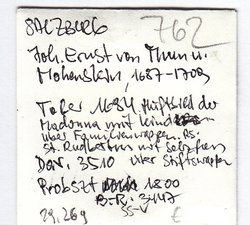 SALZBURG 762
Joh. Ernst von Thun u.
Hohenstein, 1687-1709
Taler 1694, Hüftbild der
Madonna mit Kind
über Familienwappen. Rs.
St. Rudbertus mit Salzfass
Dav. 3510 über Stiftswappen
Probszt 1800
B-R. 3447
29,26 g SS-V €